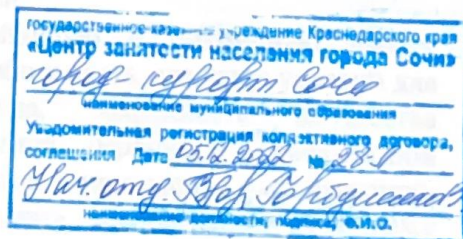 государственное казенное учреждение Краснодарского края
«Центр занятости населения города Сочи»
город-курорт Сочи
наименование муниципального образования
Уведомительная регистрация коллективного договора,
соглашения Дата 05.12.2022 №
Нач. отд.
наименование должности, подпись, Ф.И.О.